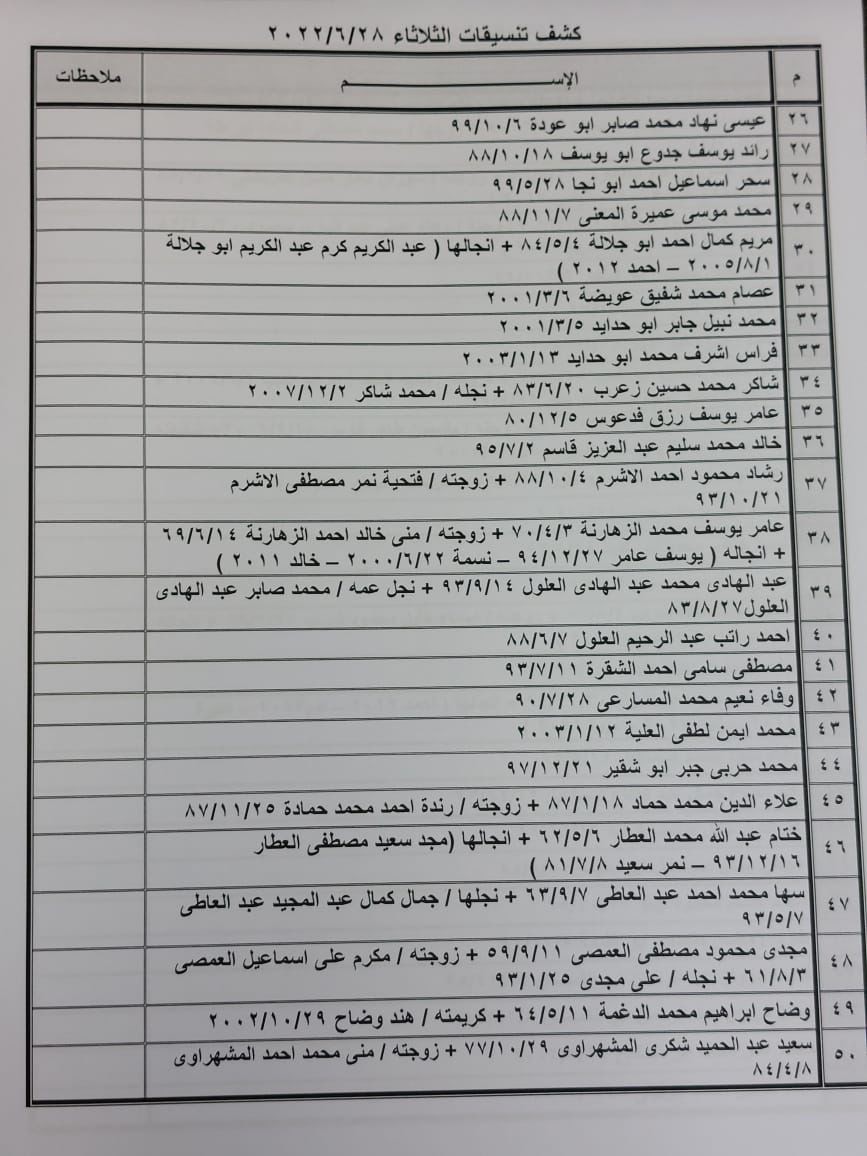 كشف تنسيقات الثلاثاء ٢٠٢٢/٦/٢٨
م الإســـــم ملاحظات
٢٦ عيسى نهاد محمد صابر ابو عودة ٩٩/١٠/٦
٢٧ رائد يوسف جدوع ابو يوسف ٨٨/١٠/١٨
٢٨ سحر اسماعيل احمد ابو نجا ٩٩/٥/٢٨
٢٩ محمد موسى عميرة المغنى ٨٨/١١/٧
٣٠ مريم كمال احمد ابو جلالة ٨٤/٥/٤ + انجالها ( عبد الكريم كرم عبد الكريم ابو جلالة
٢٠٠٥/٨/١ – احمد ٢٠١٢ )
٣١ عصام محمد شفيق عويضة ٢٠٠١/٣/٦
٣٢ محمد نبيل جابر ابو حدايد ٢٠٠١/٣/٥
٣٣ فراس اشرف محمد ابو حدايد ٢٠٠٣/١/١٣
٣٤ شاكر محمد حسين زعرب ٨٣/٦/٢٠ + نجله / محمد شاكر ٢٠٠٧/١٢/٢
٣٥ عامر يوسف رزق فدعوس ٨٠/١٢/٥
٣٦ خالد محمد سليم عبد العزيز قاسم ٩٥/٧/٢
٣٧ رشاد محمود احمد الاشرم ٨٨/١٠/٤ + زوجته / فتحية نمر مصطفى الاشرم
٩٣/١٠/٢١
٣٨ عامر يوسف محمد الزهارنة ٧٠/٤/٣ + زوجته / منى خالد احمد الزهارنة ٦٩/٦/١٤
+ انجاله ( يوسف عامر ٩٤/١٢/٢٧ – نسمة ٢٠٠٠/٦/٢٢ – خالد ٢٠١١ )
٣٩ عبد الهادى محمد عبد الهادى العلول ٩٣/٩/١٤ + نجل عمه / محمد صابر عبد الهادى
العلول٨٣/٨/٢٧
٤٠ احمد راتب عبد الرحيم العلول ٨٨/٦/٧
٤١ مصطفى سامى احمد الشقرة ٩٣/٧/١١
٤٢ وفاء نعيم محمد المسارعى ٩٠/٧/٢٨
٤٣ محمد ايمن لطفى العلية ٢٠٠٣/١/١٢
٤٤ محمد حربى جبر ابو شقير ٩٧/١٢/٢١
٤٥ علاء الدين محمد حماد ٨٧/١/١٨ + زوجته / رندة احمد محمد حمادة ٨٧/١١/٢٥
٤٦ ختام عبد الله محمد العطار ٦٢/٥/٦ + انجالها (مجد سعيد مصطفى العطار
٩٣/١٢/١٦ – نمر سعيد ٨١/٧/٨ )
٤٧ سها محمد احمد عبد العاطى ٦٣/٩/٧ + نجلها / جمال كمال عبد المجيد عبد العاطى
٩٣/٥/٧
٤٨ مجدى محمود مصطفى العمصى ٥٩/٩/١١ + زوجته / مكرم على اسماعيل العمصى
٦١/٨/٣ + نجله / على مجدى ٩٣/١/٢٥
٤٩ وضاح ابراهيم محمد الدغمة ٦٤/٥/١١ + كريمته / هند وضاح ٢٠٠٢/١٠/٢٩
٥٠ سعيد عبد الحميد شكرى المشهراوى ٧٧/١٠/٢٩ + زوجته / منى محمد احمد المشهراوى
٨٤/٤/٨